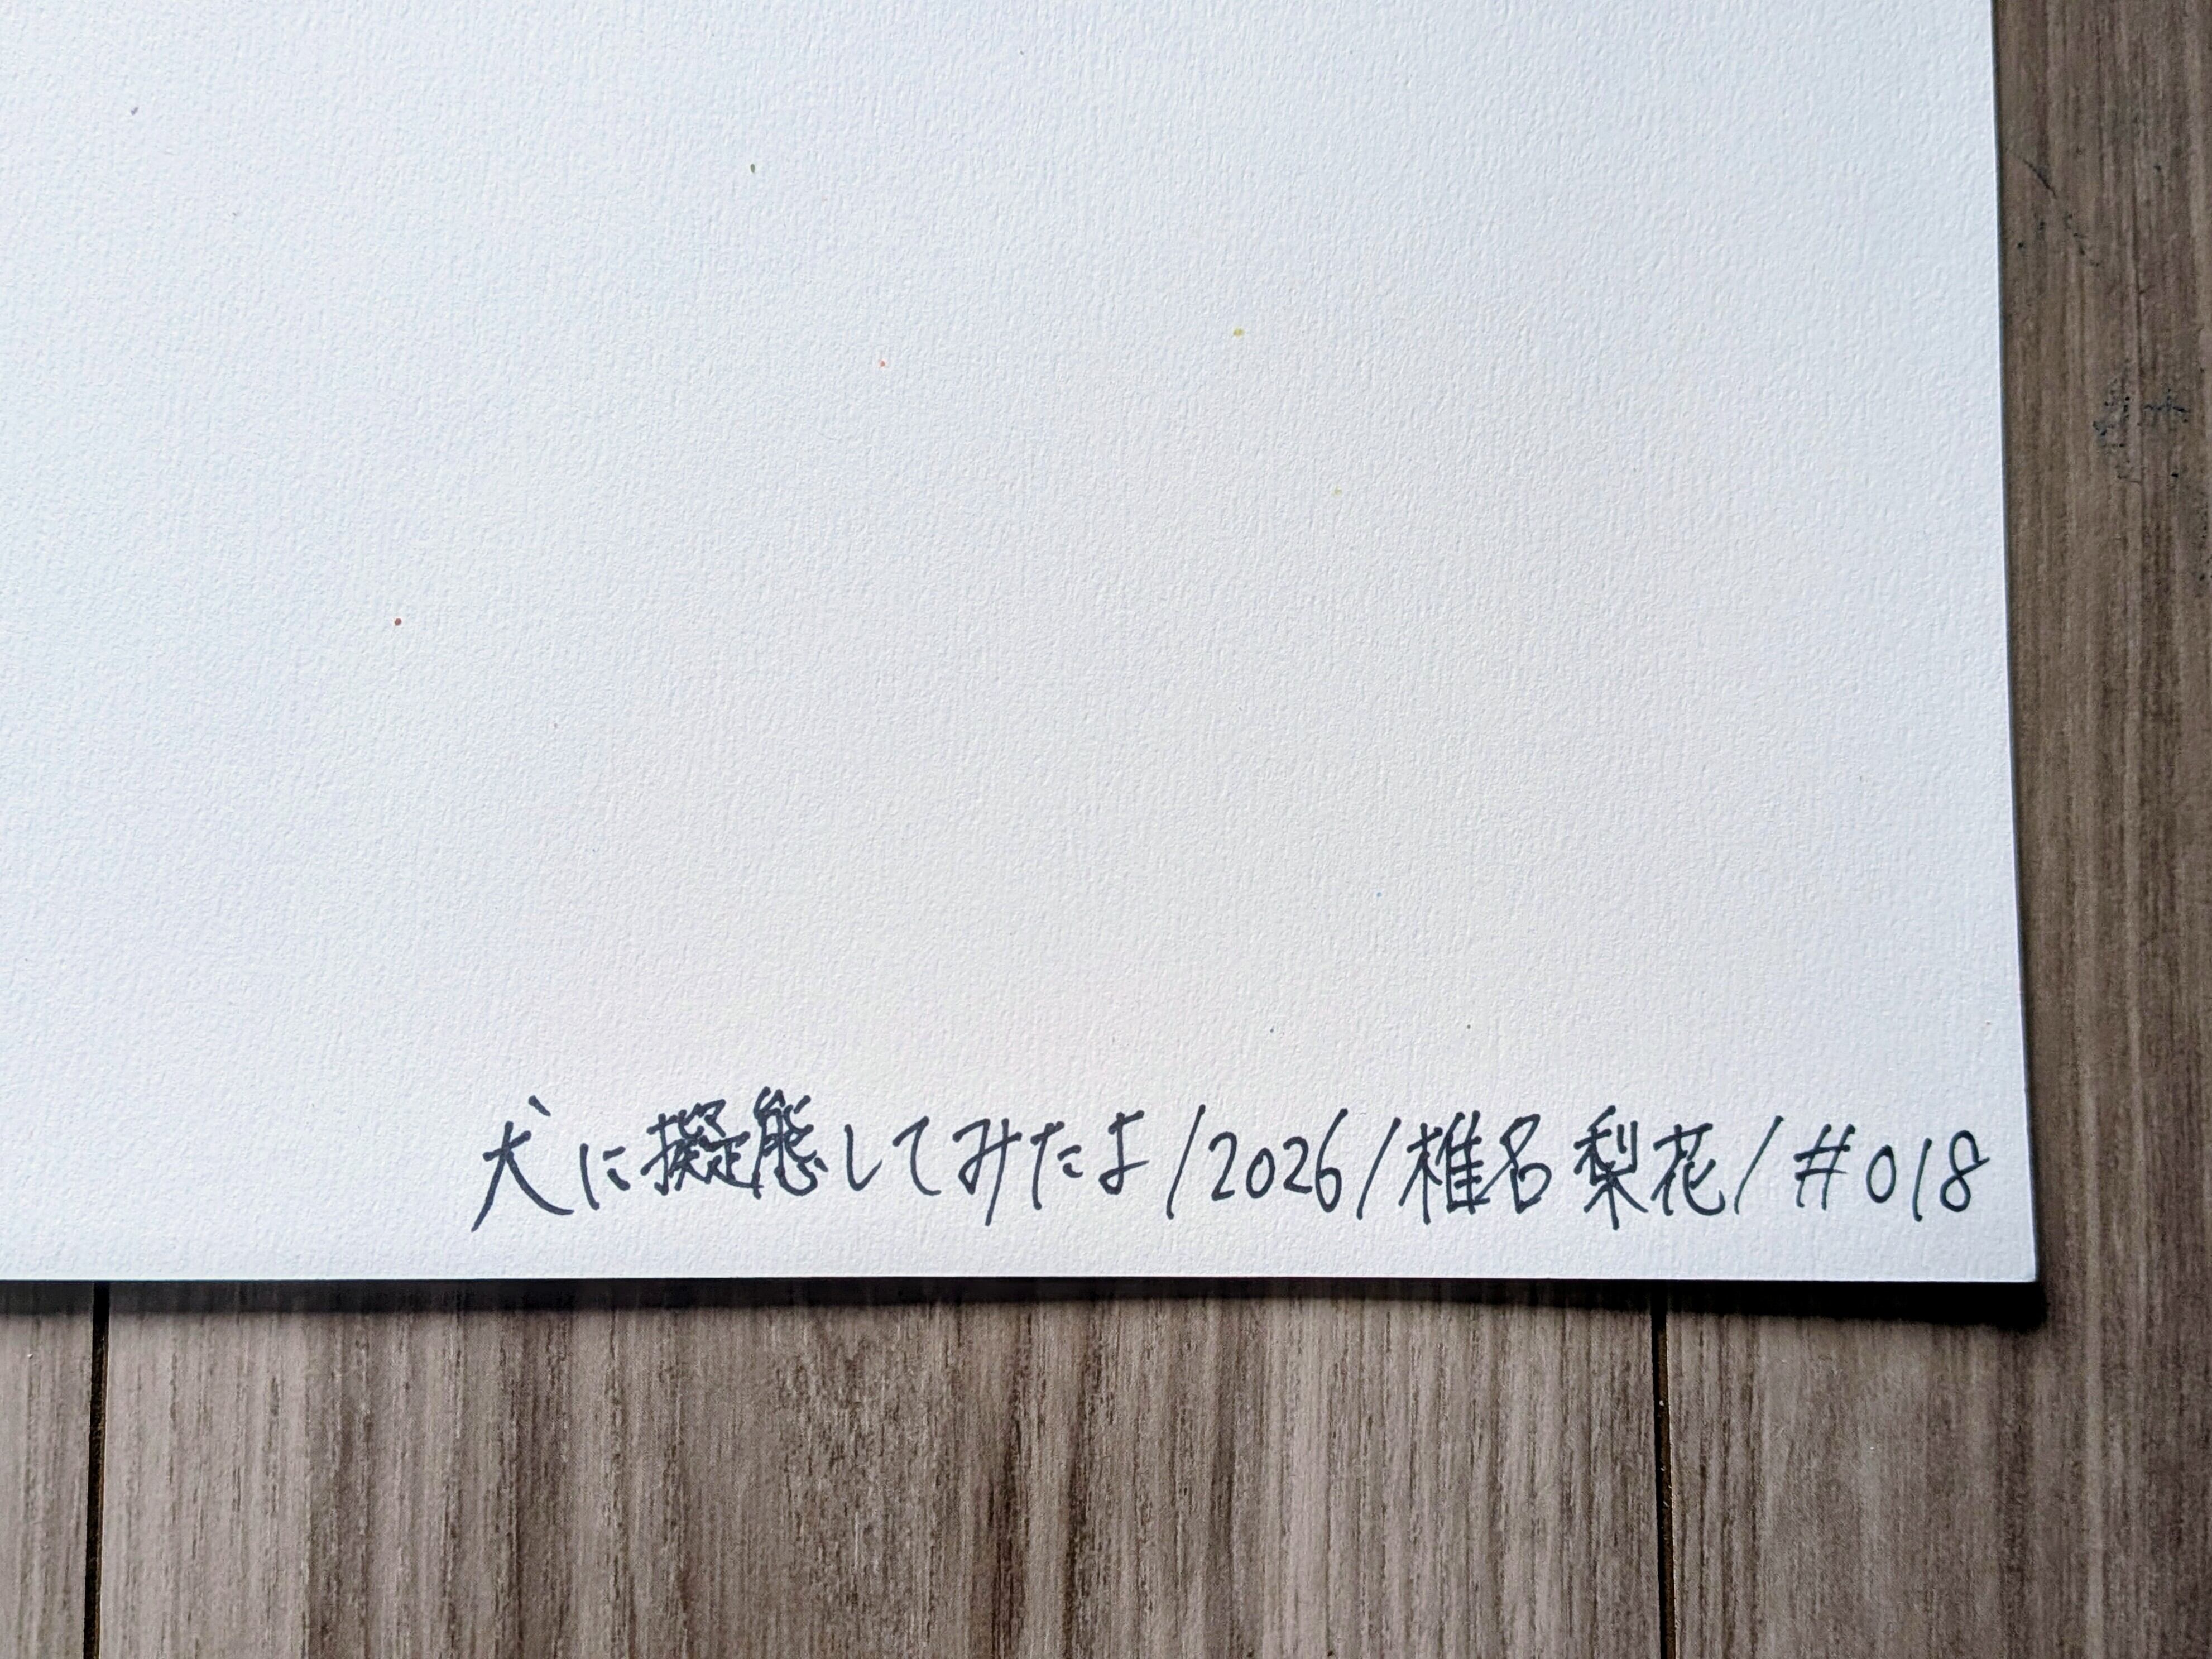 犬に擬態してみたよ/2026/椎名梨花/#018